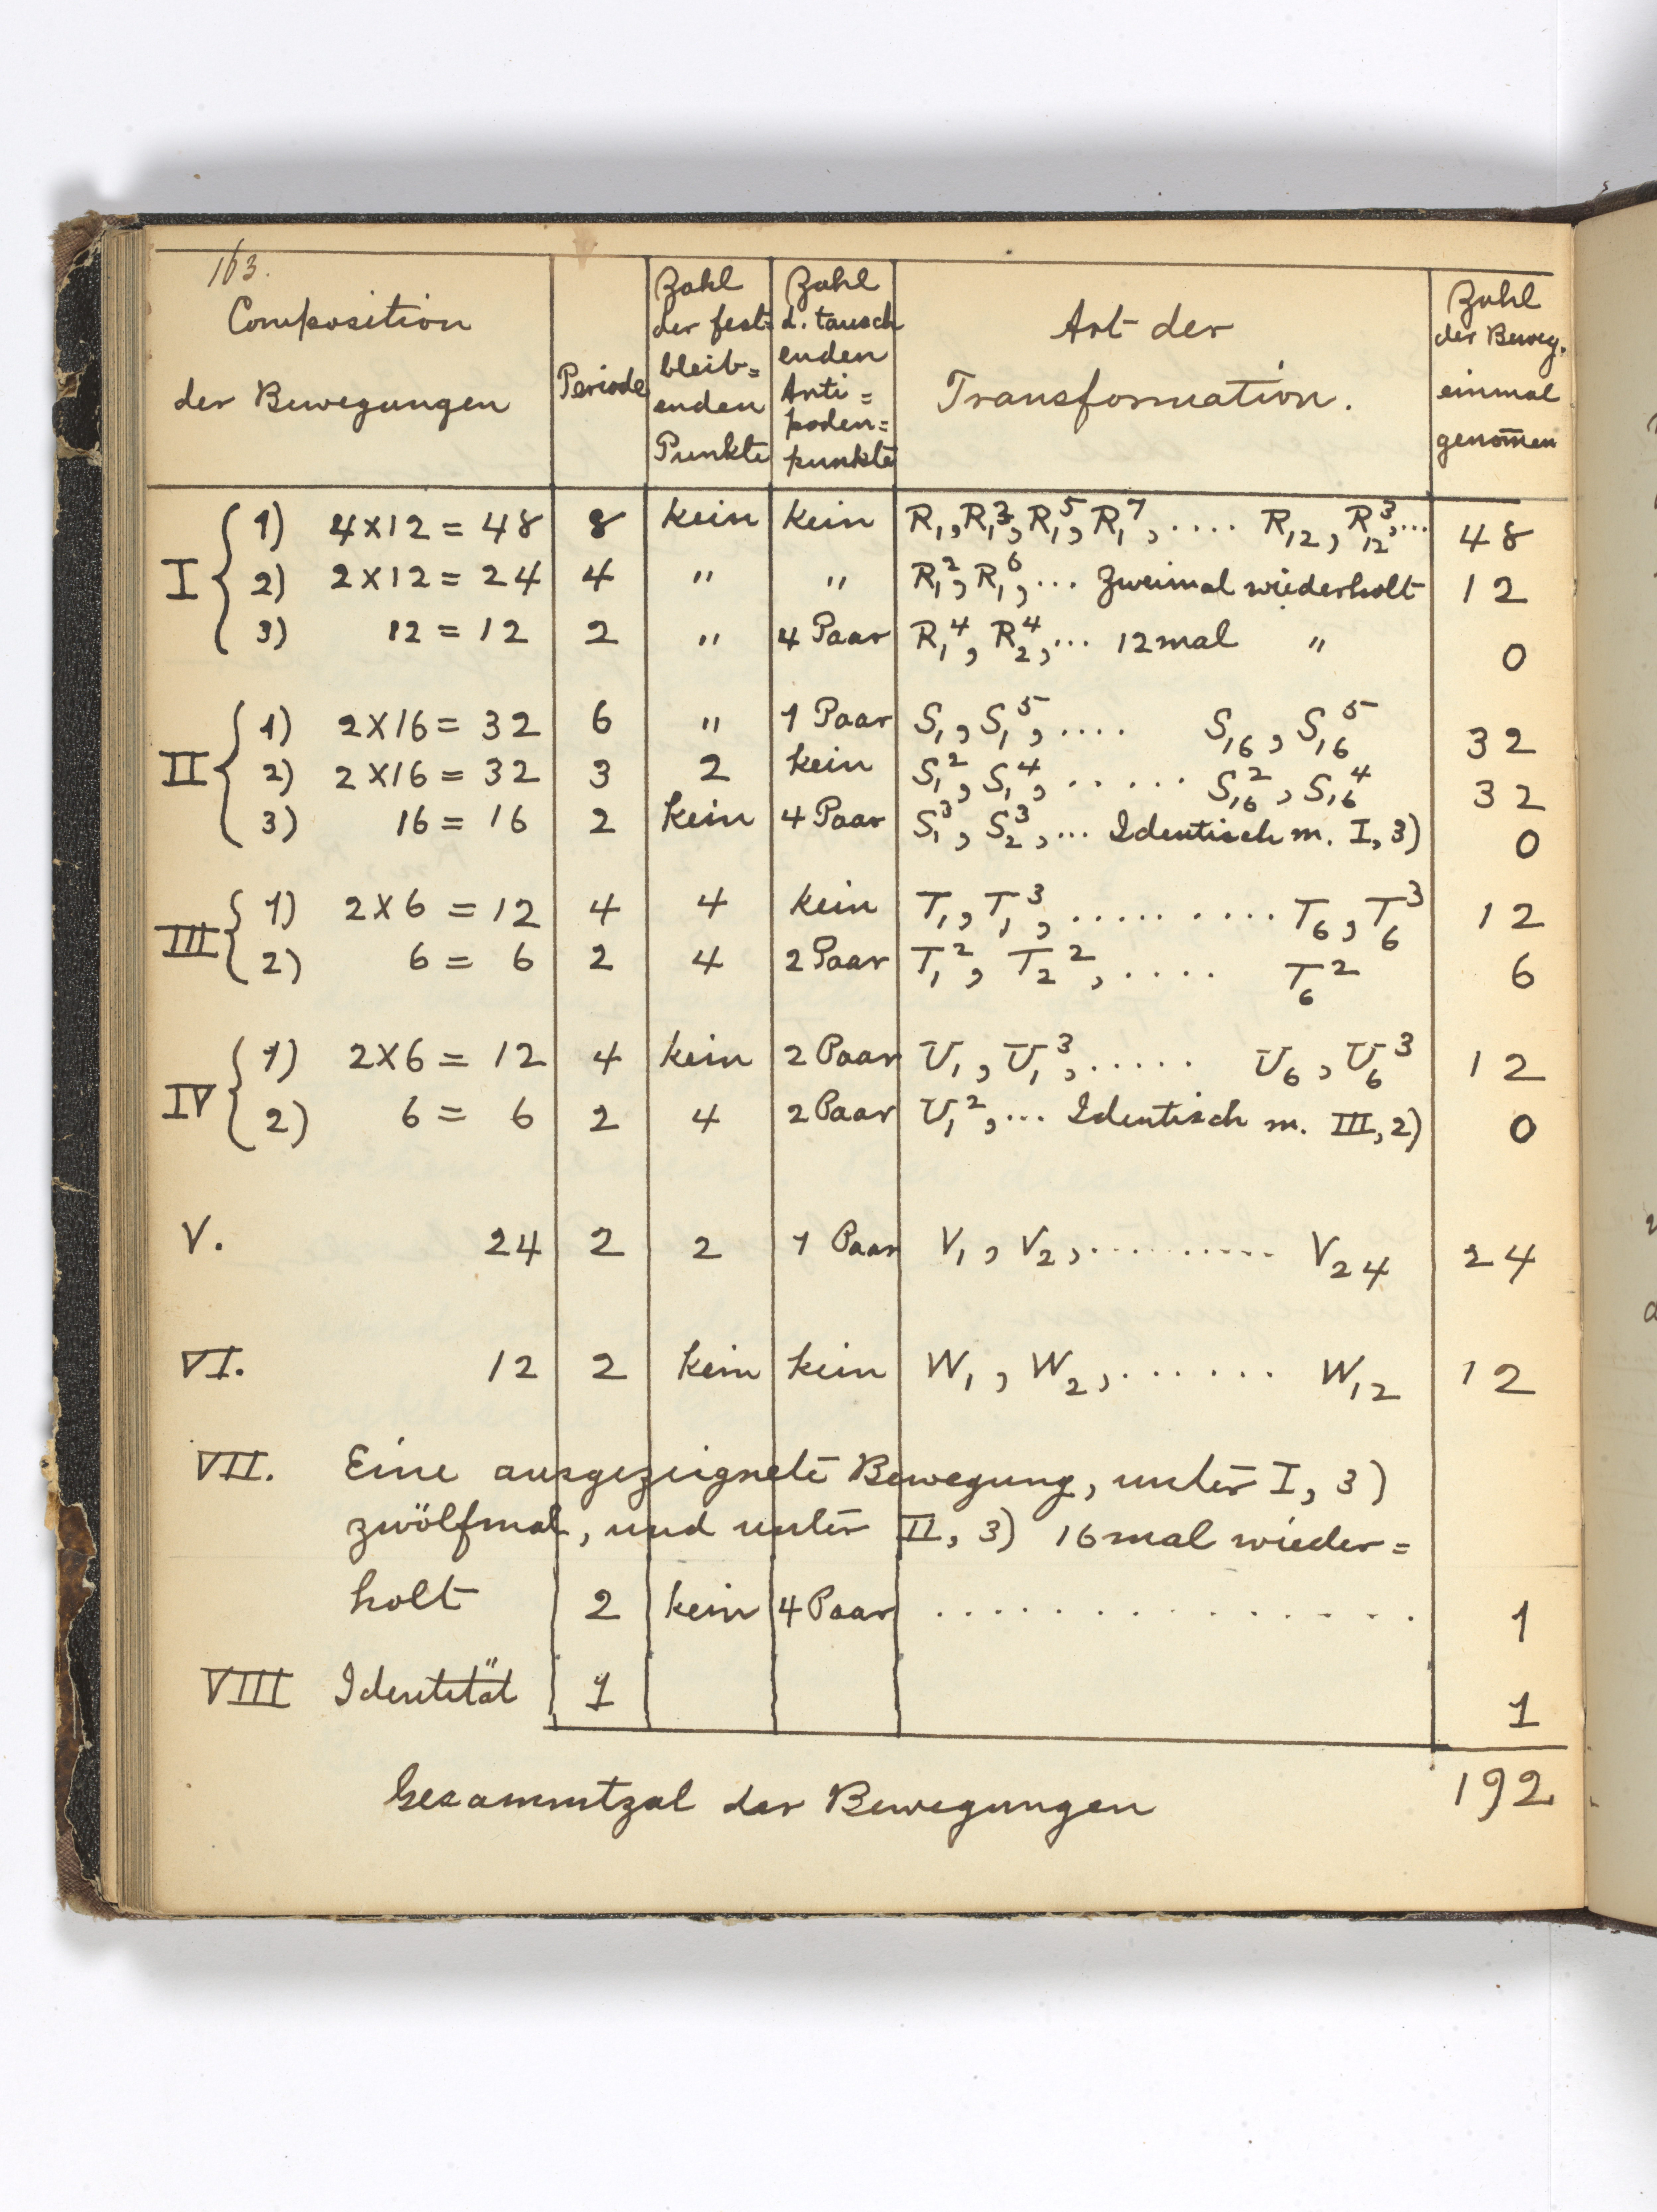 163.
Composition der Bewegungen | Periode | Zahl der fest= bleib= enden Punkte | Zahl d. tausch enden Anti= poden= punkte | Art der Transformation. | Zahl der Beweg. einmal genom̄en
I 1) 4×12 = 48 | 8 | kein | kein | R₁, R₁³, R₁⁵, R₁⁷, .... R₁₂, R₁₂³, ... | 48
2) 2×12 = 24 | 4 | " | " | R₁², R₁⁶, ... zweimal wiederholt | 12
3) 12 = 12 | 2 | " | 4 Paar | R₁⁴, R₂⁴, ... 12mal " | 0
II 1) 2×16 = 32 | 6 | " | 1 Paar | S₁, S₁⁵, .... S₁₆, S₁₆⁵ | 32
2) 2×16 = 32 | 3 | 2 | kein | S₁², S₁⁴, ...... S₁₆², S₁₆⁴ | 32
3) 16 = 16 | 2 | kein | 4 Paar | S₁³, S₂³, ... Identisch m. I, 3) | 0
III 1) 2×6 = 12 | 4 | 4 | kein | T₁, T₁³, .......... T₆, T₆³ | 12
2) 6 = 6 | 2 | 4 | 2 Paar | T₁², T₂², .... T₆² | 6
IV 1) 2×6 = 12 | 4 | kein | 2 Paar | U₁, U₁³, ..... U₆, U₆³ | 12
2) 6 = 6 | 2 | 4 | 2 Paar | U₁², ... Identisch m. III, 2) | 0
V. 24 | 2 | 2 | 1 Paar | V₁, V₂, .......... V₂₄ | 24
VI. 12 | 2 | kein | kein | W₁, W₂, ....... W₁₂ | 12
VII. Eine ausgezeignete Bewegung, unter I, 3)
zwölfmal, und unter II, 3) 16mal wieder=
holt | 2 | kein | 4 Paar | ............... | 1
VIII Identität | 1 | 1
Gesammtzal der Bewegungen 192